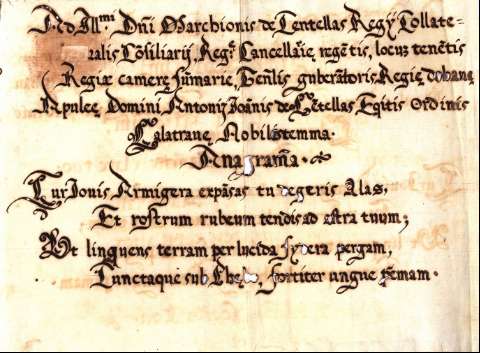 Ad Ill.mi Dñi Marchionis de Centellas Regij Collate-
ralis Cõsiliarij, Reg. Cancellarie regẽtis, locum tenẽtis
Regiæ camerę Sũmarie, Gẽn̄lis gubernatoris Regię dohanę
Apuleę Domini Antonij Ioãnis de Cẽtellas Eqitis Ordinis
Calatravę Nobilé stemma.
Anagrama.
Cur Iouis Armigera expãsas tu geris Alas,
Et rostrum rubeum tendis ad astra tuum;
Vt linquens terram per lucida sydera pergam,
Cunctaque sub fortiter ungue p̃mam.